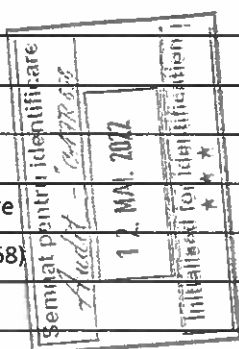 Semnat pentru identificare
Audit -
12. MAI. 2022
Initialised for identification
* * *
e
58)